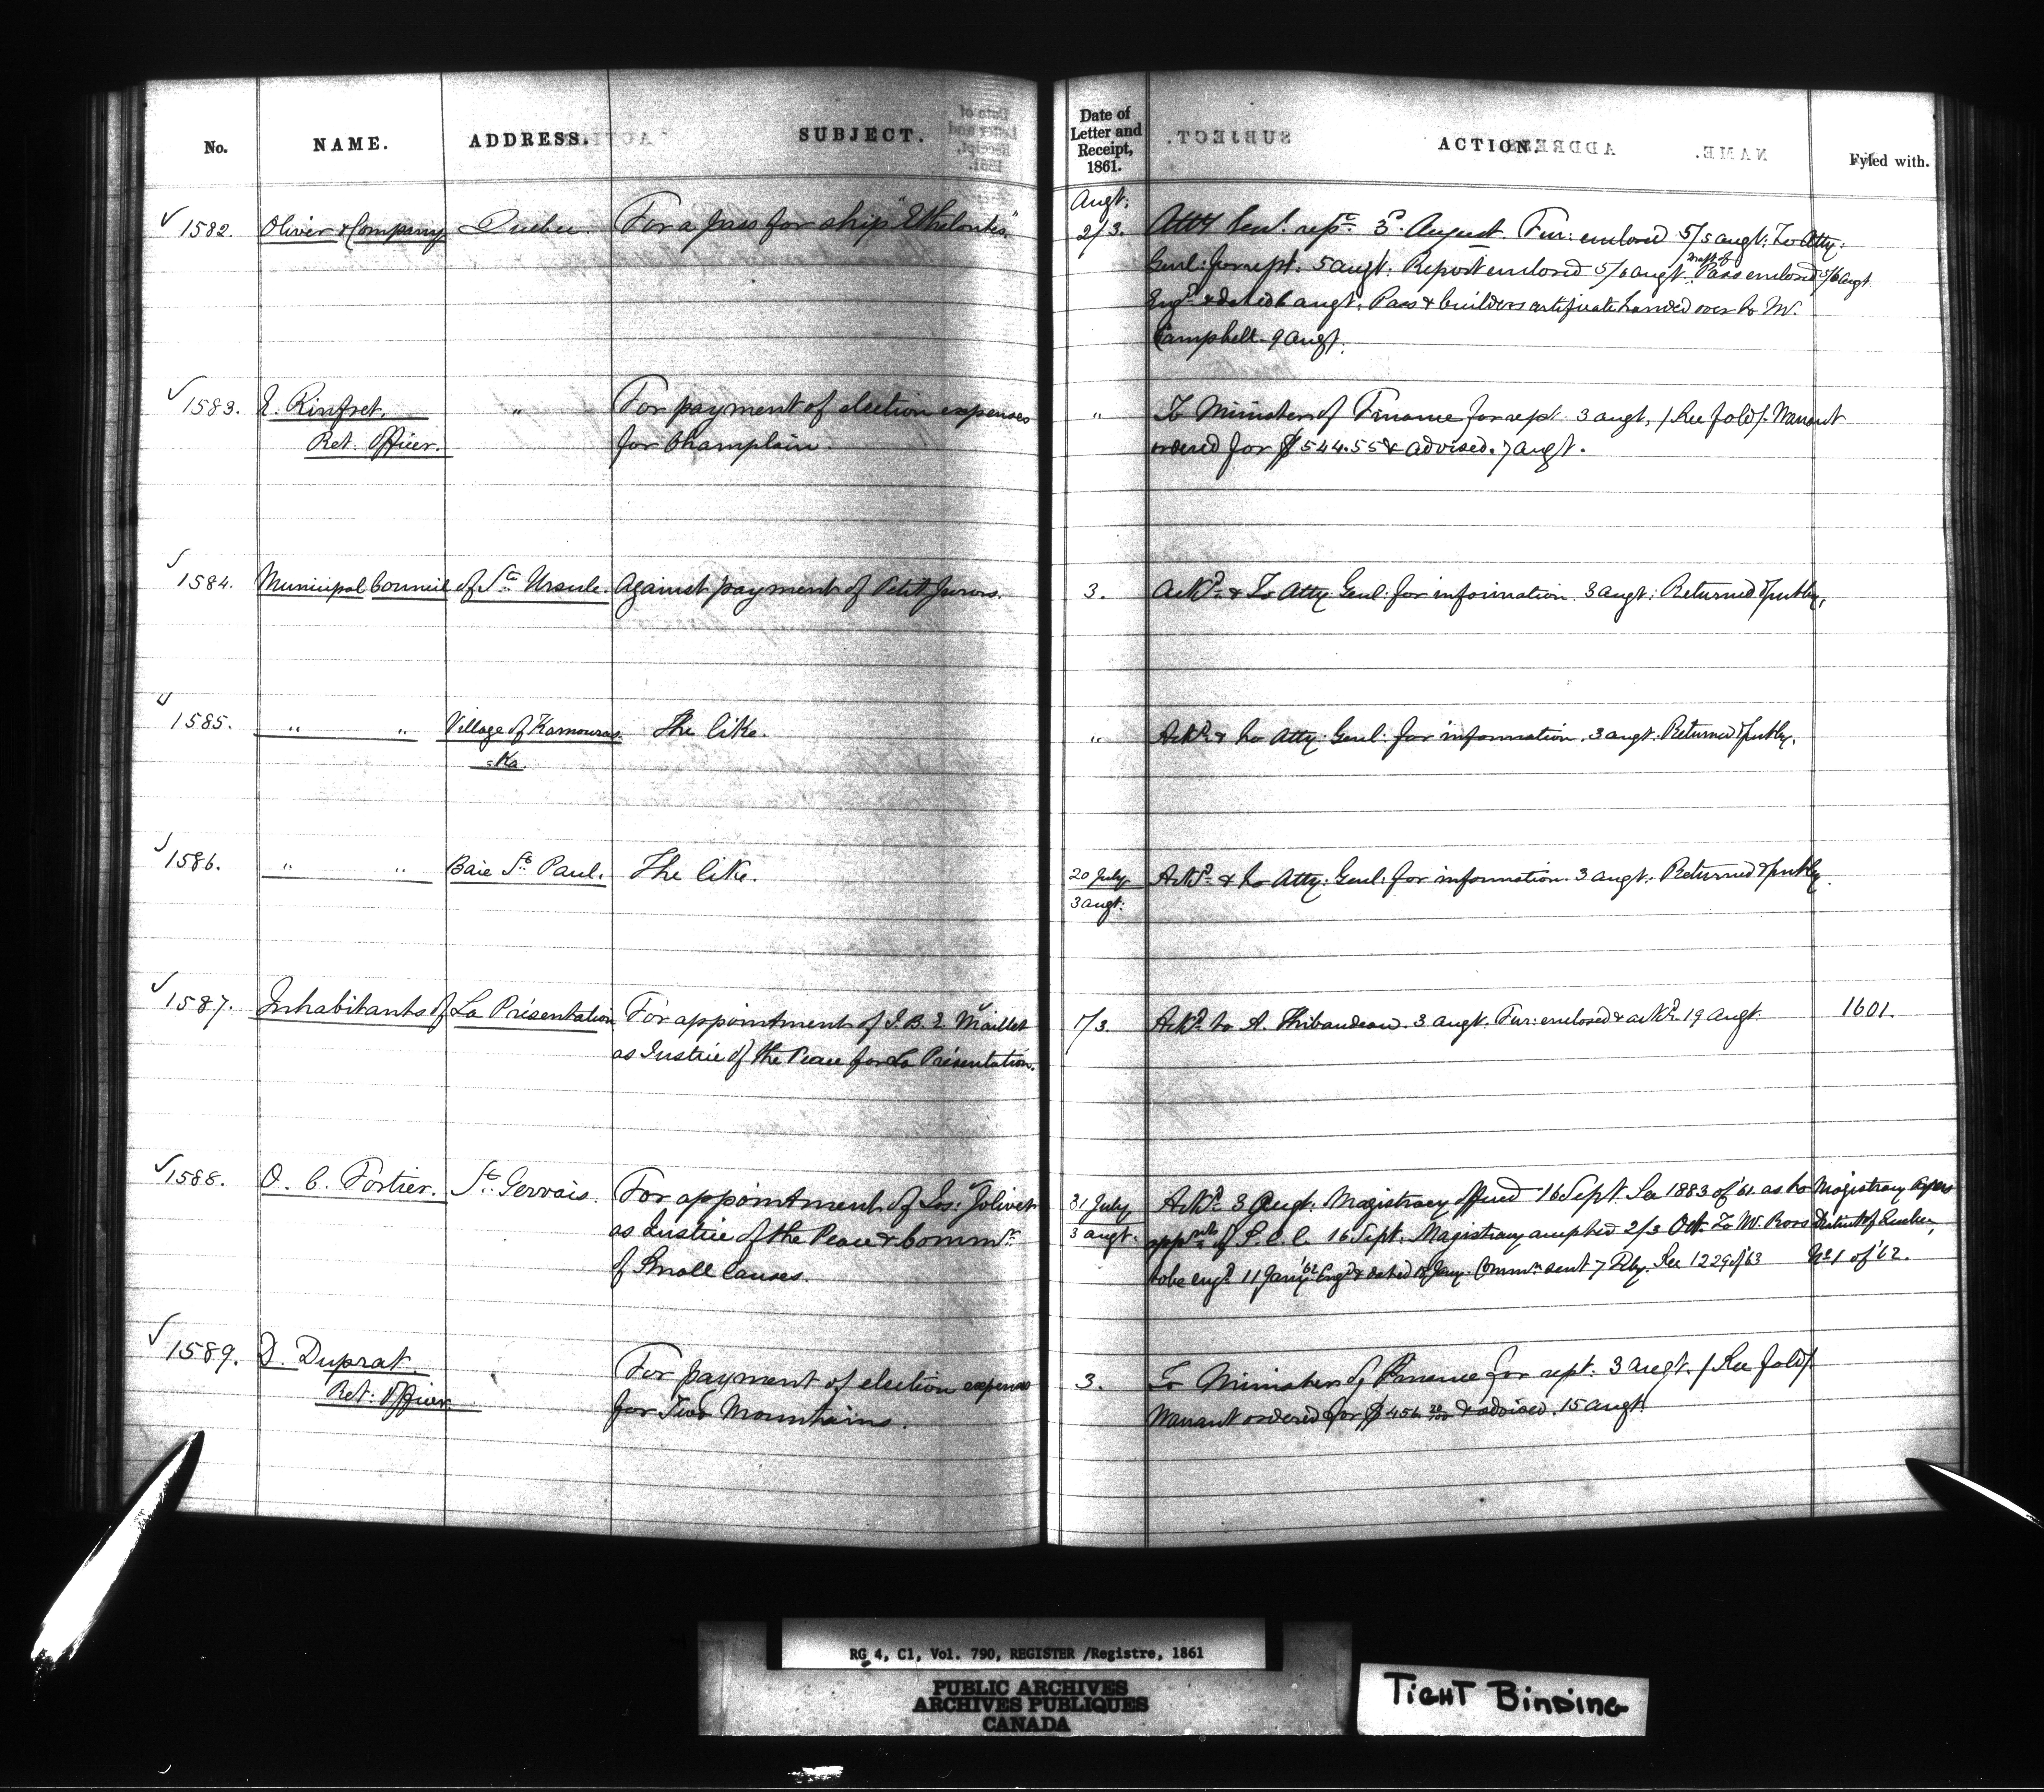 No. NAME. ADDRESS. SUBJECT. Date of Letter and Receipt, 1861. ACTION. Fyled with.
Augt:
✓ 1582. Oliver & Company Quebec. For a pass for ship "Ethelontes" 2/3. Atty Genl. rept. 3d August. Fur: enclosed 5/5 augt: To Atty:
Genl: for rept. 5 augt: Report enclosed 5/6 augt. Draft of Pass enclosed 5/6 augt
Engd. & dated 6 augt. Pass & builders certificate handed over to Mr.
Campbell. 9 augt.
✓ 1583. E. Rinfret. " For payment of election expenses " To Minister of Finance for rept. 3 augt. / See fold /. Warrant
Ret: Officer. for Champlain. ordered for $544.55 & advised. 7 augt.
✓ 1584. Municipal Council of Ste. Ursule. Against payment of Petit Jurors. 3. Ackd. & To Atty: Genl: for information. 3 augt: Returned & put by.
✓ 1585. " " Village of Kamouras The like. " Ackd. & to Atty: Genl: for information. 3 augt. Returned & put by.
=Ka.
✓ 1586. " " Baie St. Paul. The like. 20 July Ackd. & to Atty: Genl: for information. 3 augt: Returned & put by.
3 augt:
✓ 1587. Inhabitants of La Présentation For appointment of J. B. E. Maillet 1/3. Ackd. to A. Thibaudeau. 3 augt. Fur: enclosed & ackd. 19 augt. 1601.
as Justice of the Peace for La Présentation.
✓ 1588. O. C. Fortier. St. Gervais. For appointment of Jos: Jolivet 31 July Ackd. 3 Augt. Magistracy offered 16 Sept. See 1883 of '61 as to Magistracy Papers
as Justice of the Peace & Commr. 3 augt. appmts. of S. C. C. 16 Sept. Magistracy accepted 2/3 Oct. To Mr. Ross District of Quebec,
of Small Causes. to be engd. 11 Jany. '62 Engd. & dated Jany. Commn. sent 7 Feby. See 1229 of '63 No. 1 of '62.
✓ 1589. D. Duprat For payment of election expenses 3. To Minister of Finance for rept. 3 augt. / See fold /
Ret: Officer. for Two Mountains. Warrant ordered for $456 20/100 & advised. 15 augt.
RG 4, C1, Vol. 790, REGISTER /Registre, 1861
PUBLIC ARCHIVES
ARCHIVES PUBLIQUES
CANADA
TIGHT BINDING